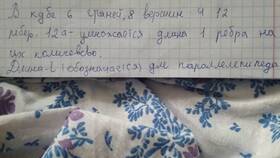 В кубе 6 граней, 8 вершин и 12
ребер. 12a - умножается длина 1 ребра на
их количество.
Длина - L (обозначается) для параллелепипеда